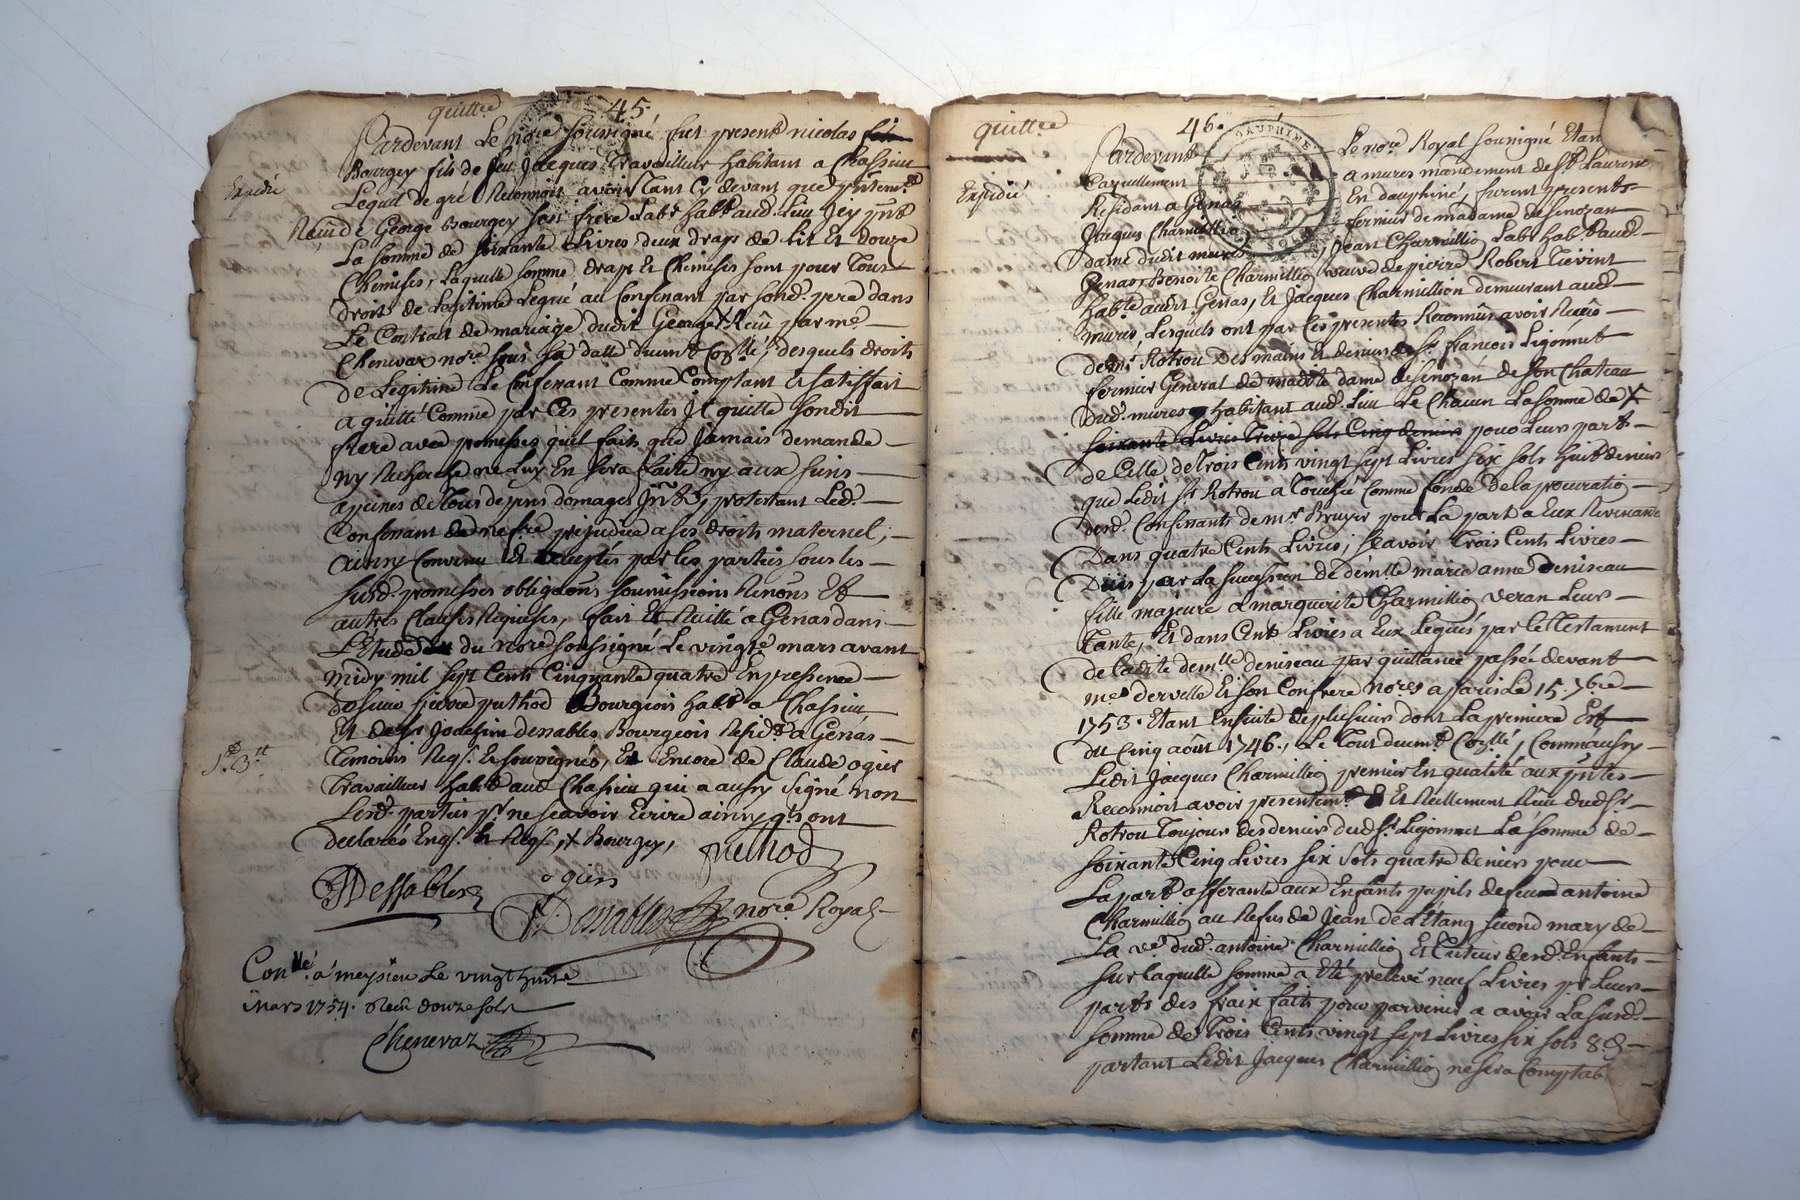 quittce
45.
Pardevant Le nore sousigné fut present nicolas
Bourgey fils de feu Jacques Travailleur habitant a Chassieu
Expedié
Lequel de gré Reconnoit avoir Tant Cy devant que pntemt
Receu de George Bourgey son frere Labr habt aud. Lieu Jcy pnt
La somme de soixante Livres deux draps de lit Et douze
Chemises, Laquelle somme, draps Et Chemises sont pour Tous
droits de Legitime Legué au Confenant par sond. pere dans
Le Contrat de mariage dudit George Receu par me
Chenevaz nore sous sa datte duemt Collé, desquels droits
de Legitime Le Confenant Comme Comptant Et satisfait
a quitté Comme par Ces presentes Jl quitte sondit
frere avec promesses qu'il fait que Jamais demande
ny Recherche ne Luy En sera faite ny aux siens
a peines de Tous depens domages Jnts, protestant Led.
Confenant de ne se prejudice a ses droits maternel;
Ainsy Convenu Et accepté par les parties sous les
susd. promesses obligaons soumissions Renons Et
autres Clauses Requises, fait Et Recité a Genas dans
L'Etude du nore soussigné Le vingte mars avant
midy mil sept Cents Cinquante quatre En presence
de sieur pierre puthod Bourgeois habt a Chassieu
Et de sr Joachim dessables Bourgeois Residt a Genas
Temoins Reqs. Et souvignés, Et Encore de Claude ogier
Travailleur habt aud Chassieu qui a aussy signé non
Lesd. parties pr ne scavoir Ecrire ainsy qs ont
declarés Enqs. Et Reqs, Bourgey,
puthod
Dessables
ogier
Dessables nore Royal
Conllé a meysieu Le vingt huit
mars 1754. Receu douze sols
Chenevaz
quittce
46.
DAUPHINE
Pardevant Le nore Royal sousigné Etant
Expedié
Casuellement a mures mandement de st Laurent
Residant a Genas En dauphiné, furent presents
Jacques Charmillion fermier de madame de senozan
dame dudit mures, Jean Charmillion Labr habt aud.
Genas, Benoite Charmillion veuve de pierre Robert Tievint
habte audit Genas, Et Jacques Charmillion demeurant aud.
mures, Lesquels ont par Ces presentes Reconnus avoir Receus
de mr Rotrou des mains Et deniers de sr. françois Ligonnet
fermier General de madite dame de senozan de son Chateau
dud. mures habitant aud. Lieu Le Chacun La somme de
soixante Livres Treize sols Cinq deniers pour Leur part
de Celle de Trois Cents vingt sept Livres six sols huit deniers
que Ledit sr Rotrou a Touchée Comme fondé de La procuration
desd. Confenants de mr Bruyer pour La part a Eux Revenante
Dans quatre Cents Livres; scavoir Trois Cents Livres
Dües par La succession de demlle marie anne deniseau
fille majeure a marguerite Charmillion veran Leur
Tante, Et dans Cents Livres a Eux Legués par Le Testament
de Ladite demlle deniseau par quittance passée devant
mes derville Et son Confrere nores a paris Le 15. 7bre
1753. Etant Ensuite de plusieurs dont La premiere Est
du Cinq août 1746., Le Tout duemt Collé, Comm'aussy
Ledit Jacques Charmillion premier En qualité aux pntes
Reconnoit avoir presentemt Et Reellement Receu dud sr
Rotrou Toujours des deniers dud sr. Ligonnet La somme de
soixante Cinq Livres six sols quatre deniers pour
La part afferante aux Enfants pupils de feu antoine
Charmillion au Refus de Jean de L'Etang second mary de
La ve dud. antoine Charmillion Et Tuteur desd. Enfants
sur Laquelle somme a Eté prelevé neuf Livres pr Leurs
parts des fraix faits pour parvenir a avoir La susd.
somme de Trois Cents vingt sept Livres six sols 8 d.
partant Ledit Jacques Charmillion ne sera Comptab